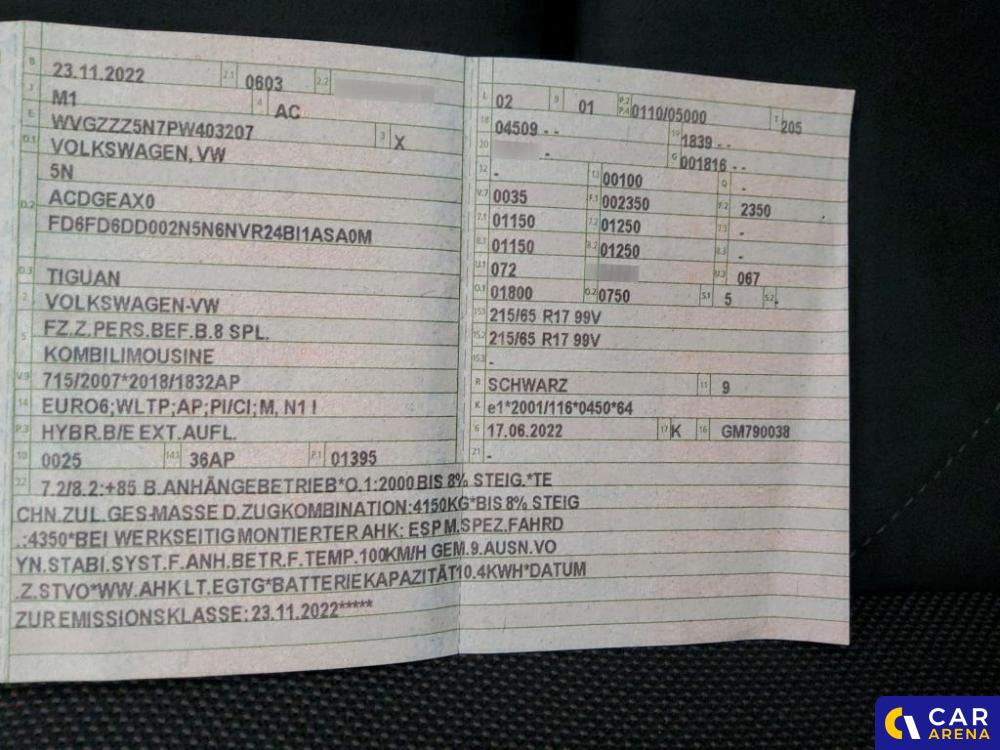 B 23.11.2022 2.1 0603 2.2
J M1 4 AC
E WVGZZZ5N7PW403207 3 X
D.1 VOLKSWAGEN, VW
5N
D.2 ACDGEAX0
FD6FD6DD002N5N6NVR24BI1ASA0M
D.3 TIGUAN
2 VOLKSWAGEN-VW
5 FZ.Z.PERS.BEF.B.8 SPL.
KOMBILIMOUSINE
V.9 715/2007*2018/1832AP
14 EURO6;WLTP;AP;PI/CI; M, N1 I
P.3 HYBR.B/E EXT.AUFL.
10 0025 14.1 36AP P.1 01395
22 7.2/8.2:+85 B.ANHÄNGEBETRIEB*O.1:2000 BIS 8% STEIG.*TE
CHN.ZUL.GES-MASSE D.ZUGKOMBINATION:4150KG*BIS 8% STEIG
.:4350*BEI WERKSEITIG MONTIERTER AHK: ESP M.SPEZ.FAHRD
YN.STABI.SYST.F.ANH.BETR.F.TEMP.100KM/H GEM.9.AUSN.VO
.Z.STVO*WW.AHK LT.EGTG*BATTERIEKAPAZITÄT10.4KWH*DATUM
ZUR EMISSIONSKLASSE: 23.11.2022*****
L 02 9 01 P.2 P.4 0110/05000 T 205
18 04509 - - 19 1839 - -
20 - G 001816 - -
12 - 13 00100 Q -
V.7 0035 F.1 002350 F.2 2350
7.1 01150 7.2 01250 7.3 -
8.1 01150 8.2 01250 8.3 -
U.1 072 U.3 067
O.1 01800 O.2 0750 S.1 5 S.2 -
15.1 215/65 R17 99V
15.2 215/65 R17 99V
15.3 -
R SCHWARZ 11 9
K e1*2001/116*0450*64
6 17.06.2022 17 K 16 GM790038
21 -
CAR
ARENA